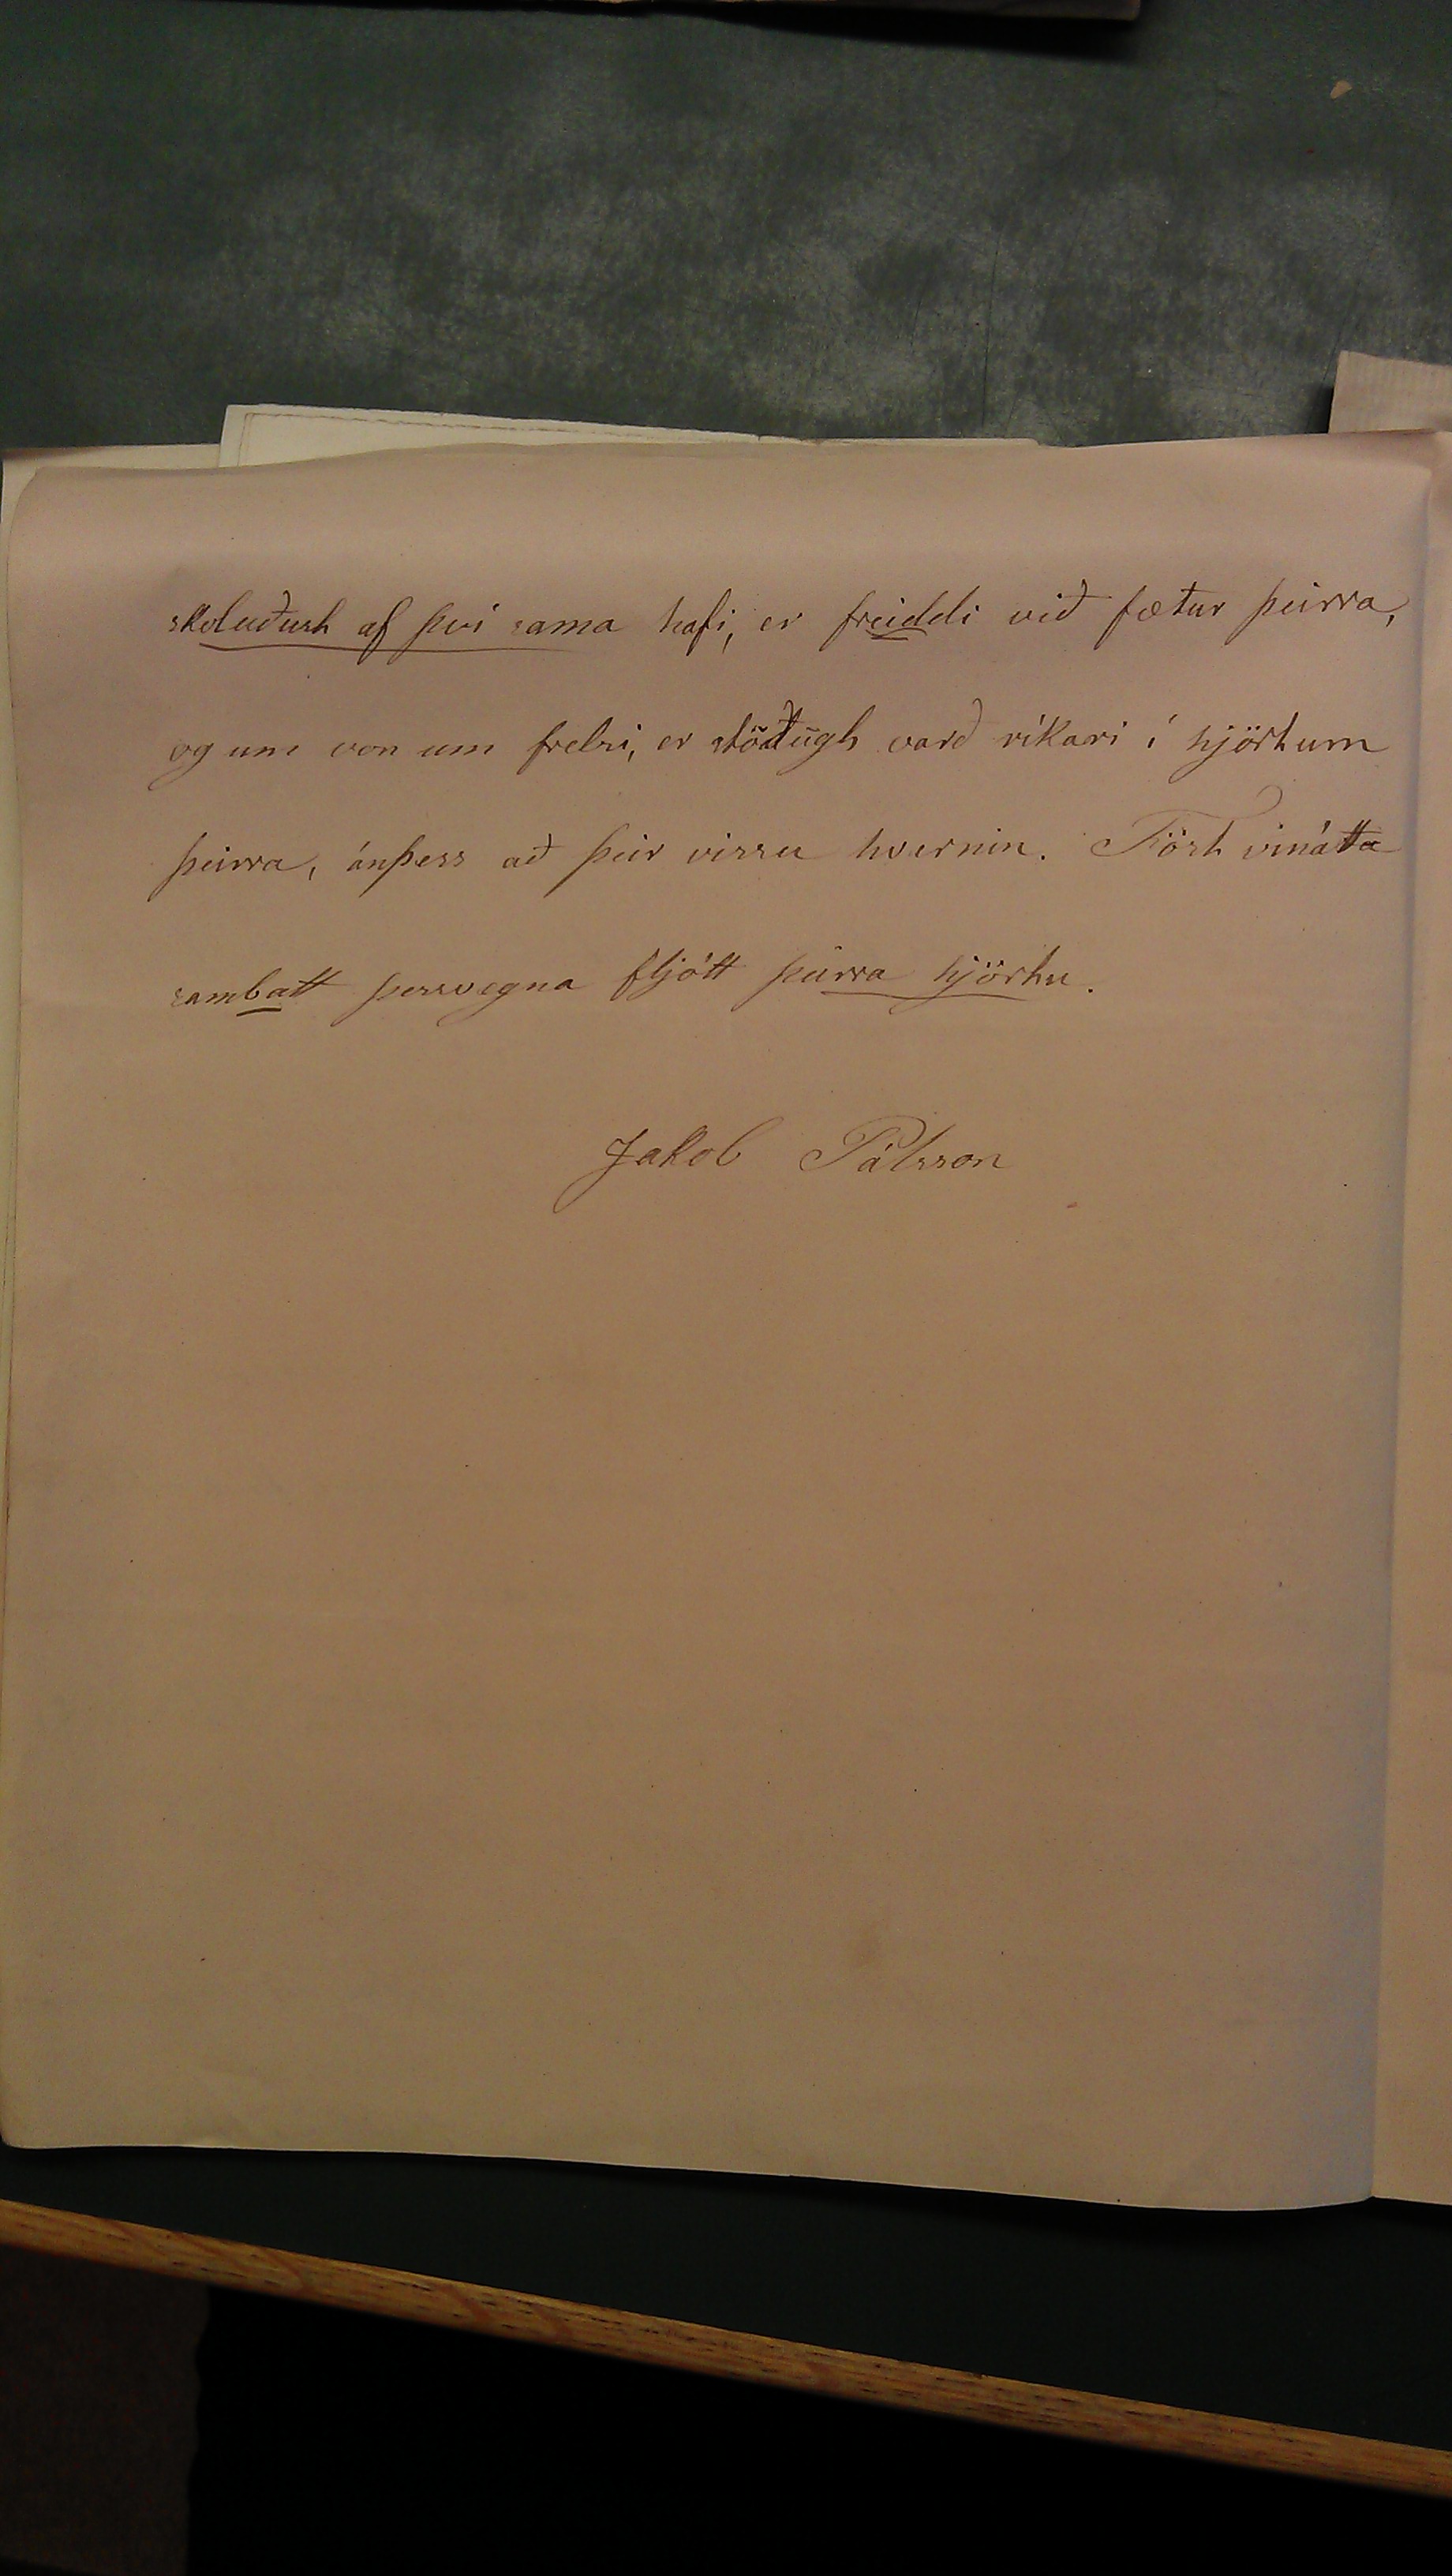 skoluðust af því sama hafi, er freiddi við fætur þeirra,
og um von um frelsi, er stöðugt varð ríkari í hjörtum
þeirra, ánþess að þeir vissu hvernin. Föst vinátta
sambatt þessvegna fljótt þeirra hjörtu.
Jakob Pálsson